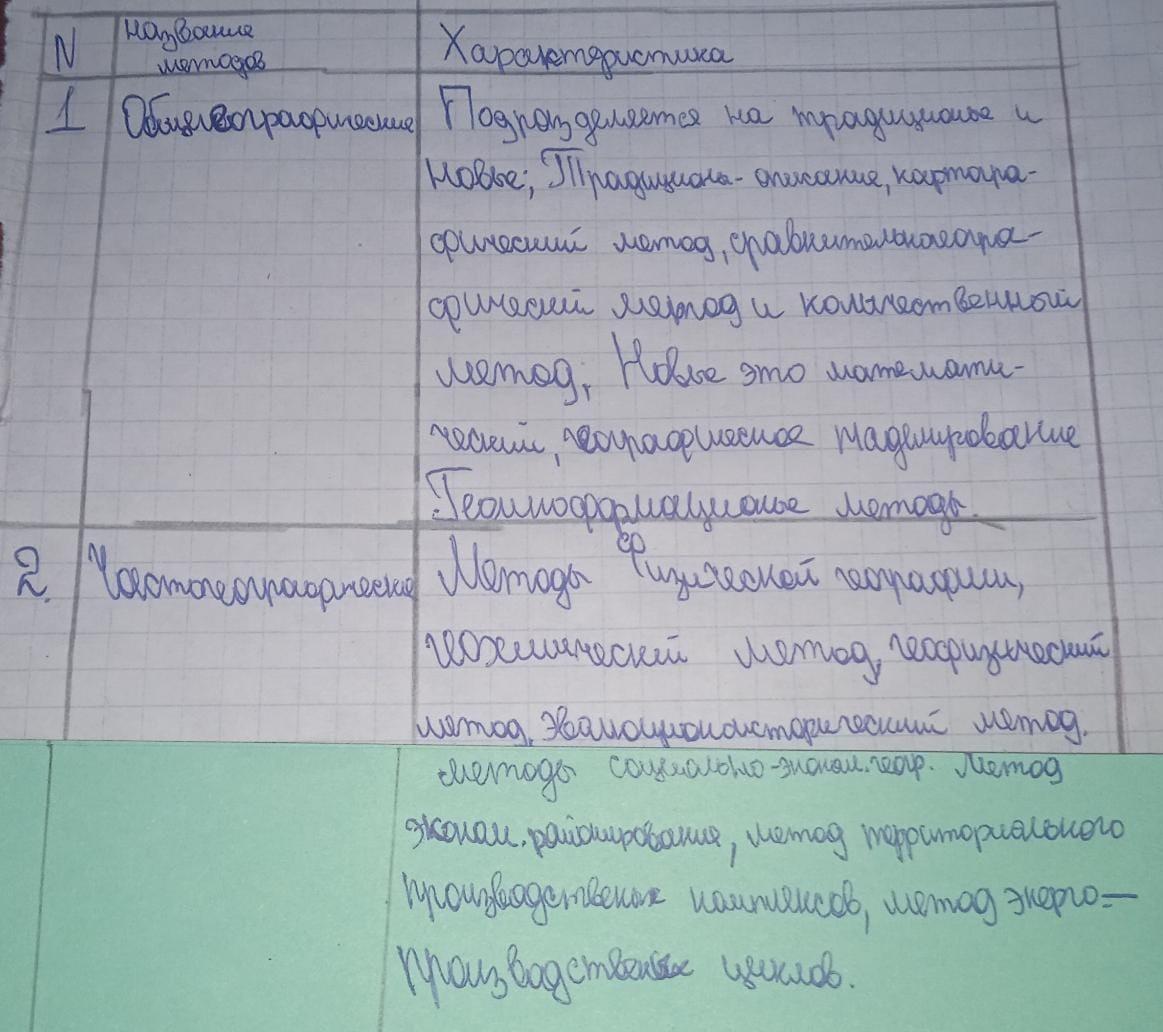 N
название
методов
Характеристика
1
Общегеографические
Подразделяется на традиционые и
новые; Традициона- описание, картогра-
фический метод, сравнительногеогра-
фический метод и количественный
метод; Новые это математи-
ческий, географическое маделирование
Геоинформационые методы.
2.
Частногеографические
Методы физической географии,
геохимический метод, геофизический
метод, эвалюционоисторический метод.
методы социально-эконом.геогр. Метод
эконом. районирования, метод территориального
производственых комплексов, метод энерго-
производственые циклов.